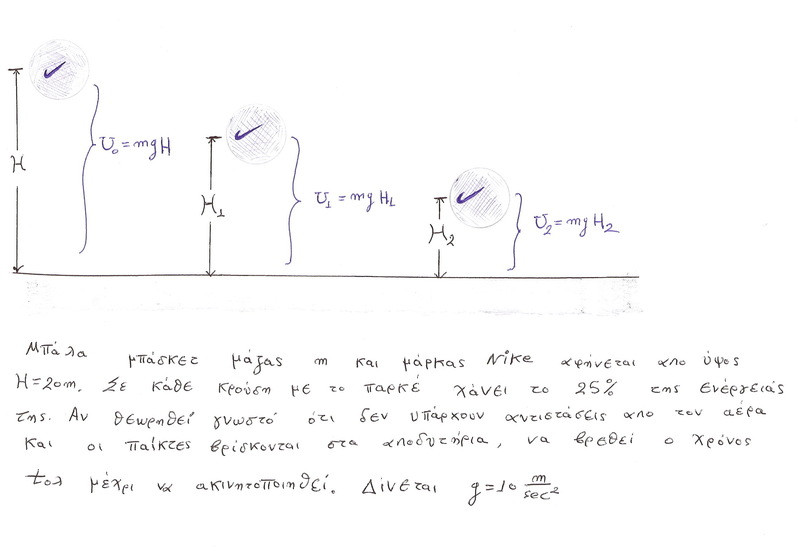 H
U₀ = mgH
H₁
U₁ = mgH₁
H₂
U₂ = mgH₂
Μπάλα μπάσκετ μάζας m και μάρκας Nike αφήνεται απο ύψος
H=20m. Σε κάθε κρούση με το παρκέ χάνει το 25% της ενέργειάς
της. Αν θεωρηθεί γνωστό ότι δεν υπάρχουν αντιστάσεις απο τον αέρα
και οι παίκτες βρίσκονται στα αποδυτήρια, να βρεθεί ο χρόνος
tολ μέχρι να ακινητοποιηθεί. Δίνεται g=10 m/sec²